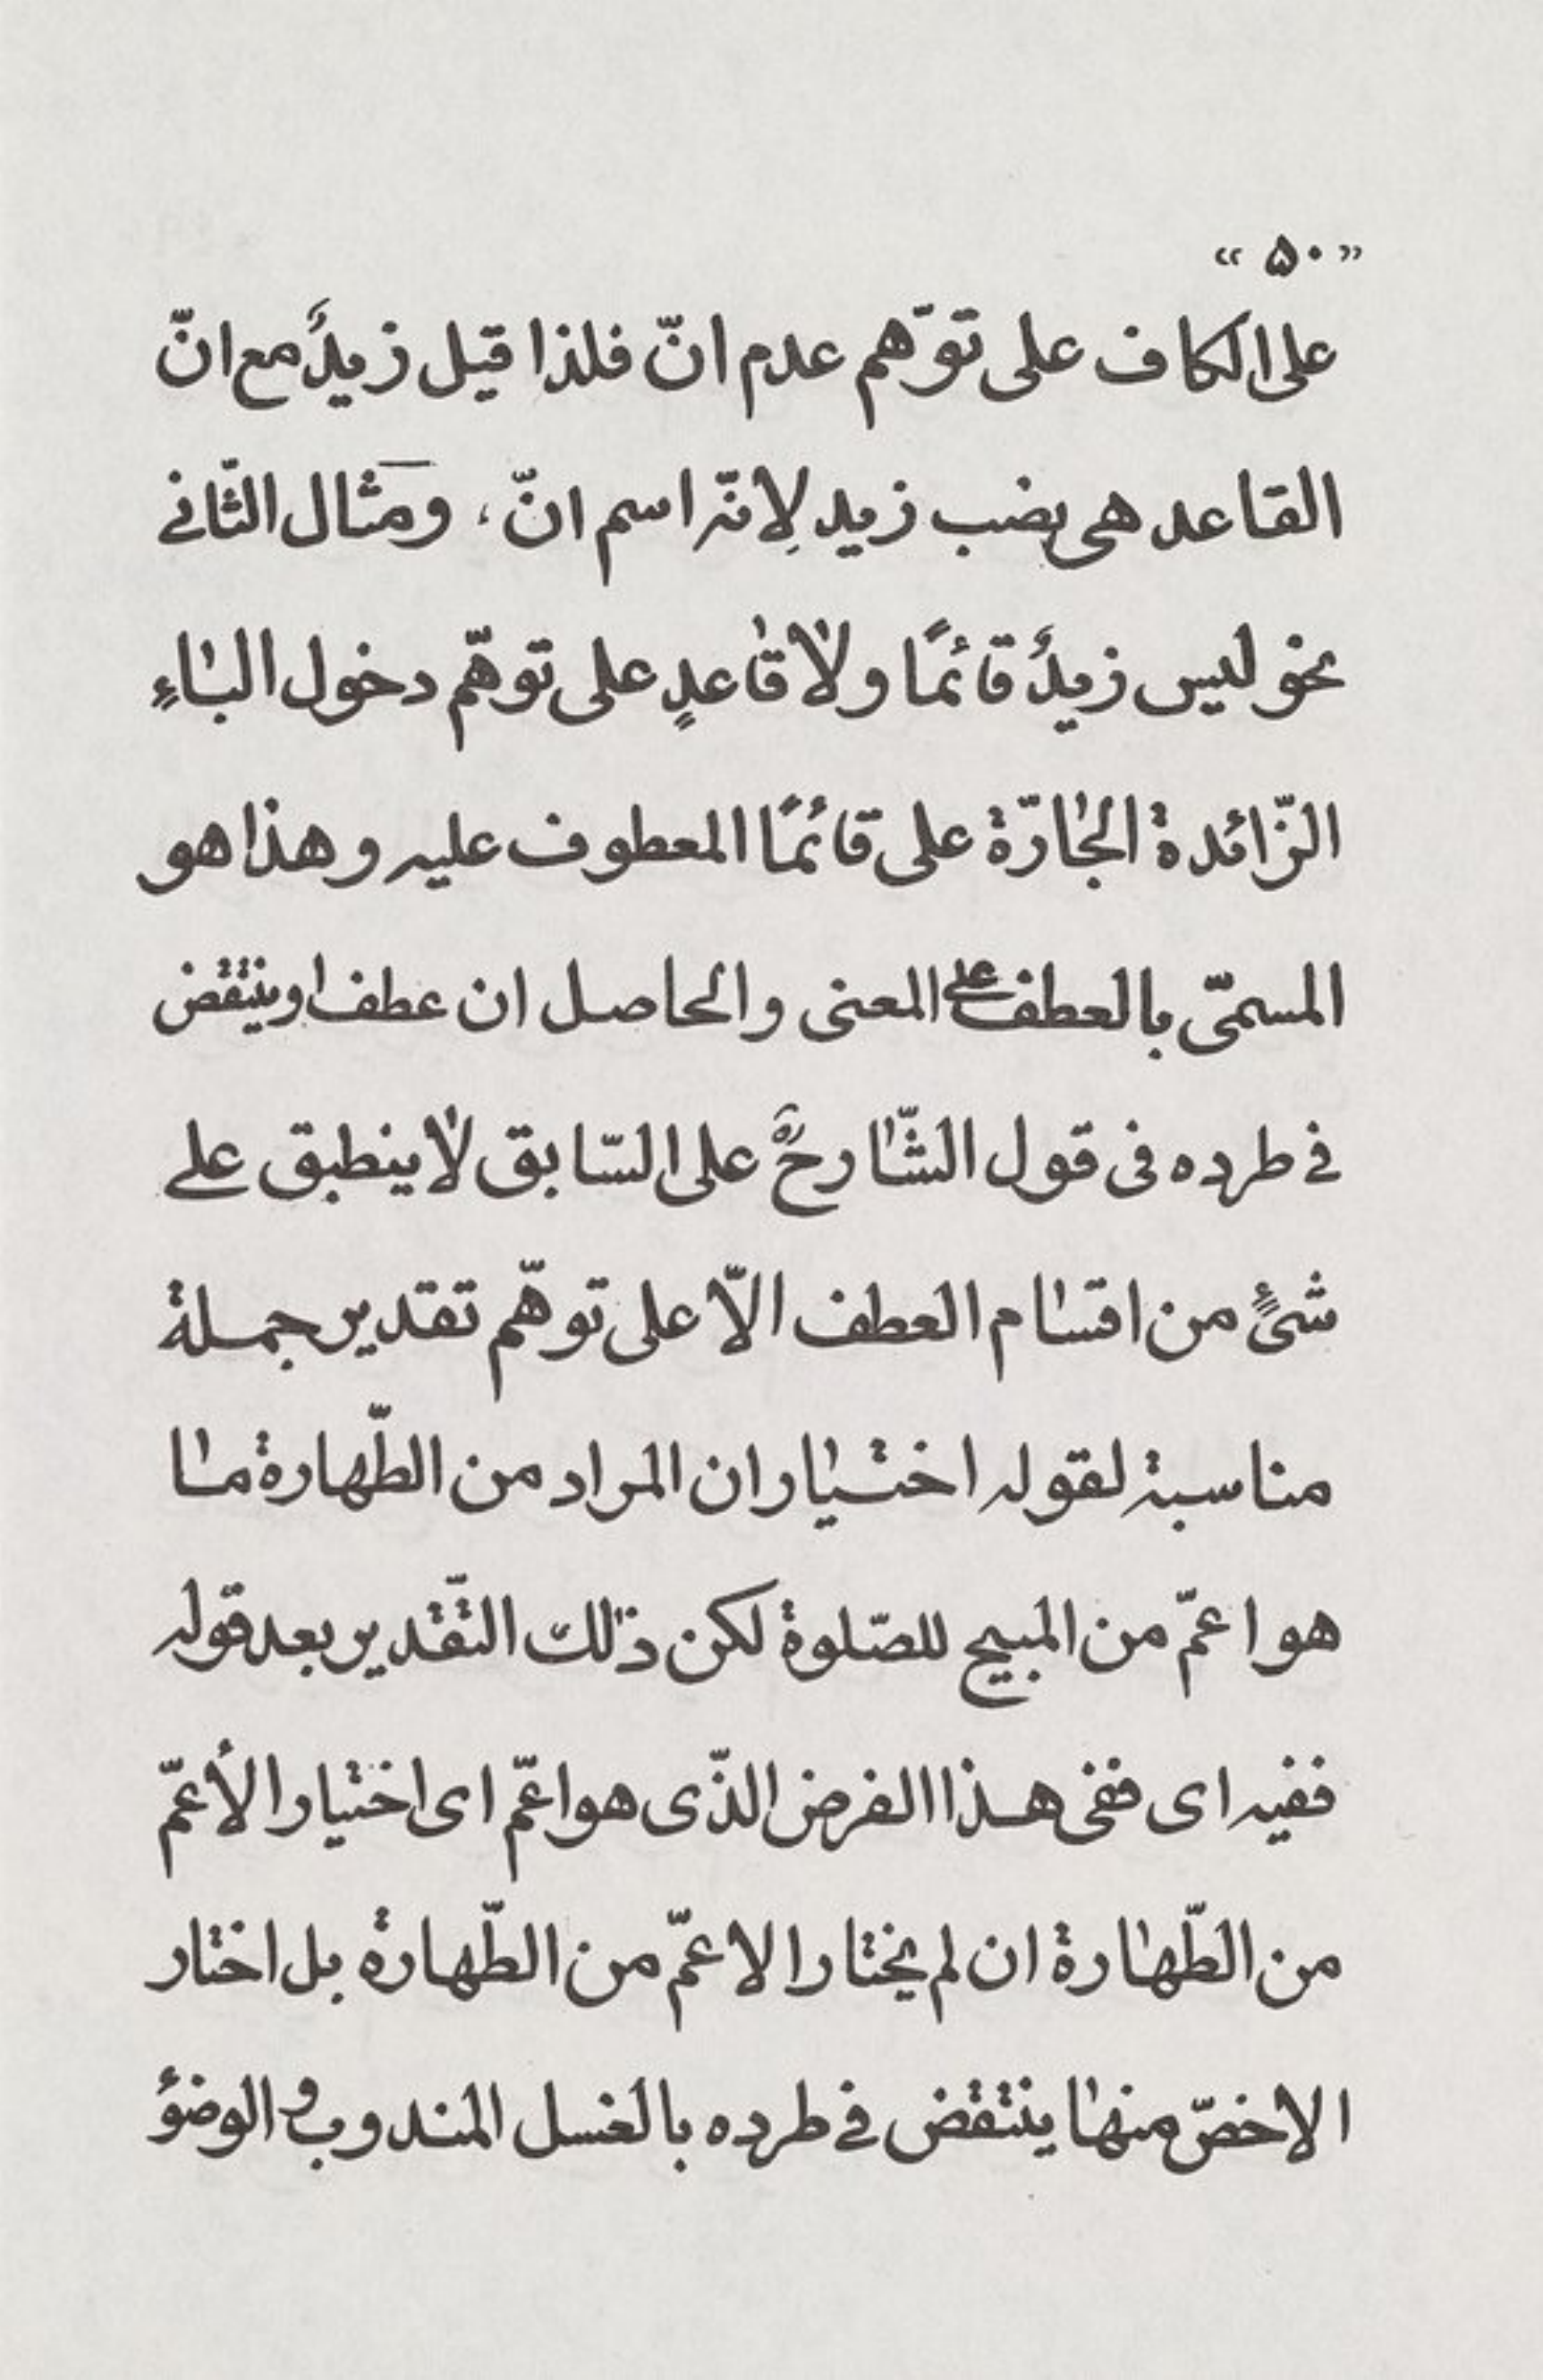 «۵۰»
على الكاف على توّهم عدم انّ فلذا قيل زيدٌ مع انّ
القاعد هى نصب زيد لِانّه اسم انّ، ومثال الثّانے
نحو ليس زيدٌ قائمًا ولا قاعدٍ على توهّم دخول الباءِ
الزّائدة الجارّة على قائمًا المعطوف عليه وهذا هو
المسمّى بالعطف على المعنى والحاصل ان عطف او ينتقض
فے طرده فى قول الشّارحؒ على السّابق لا ينطبق علے
شئٍ من اقسام العطف الّا على توهّم تقدير جملة
مناسبة لقوله اختيار ان المراد من الطّهارة ما
هو اعمّ من المبيح للصّلوة لكن ذلك التّقدير بعد قوله
ففيه اى ففى هذا الفرض الذّى هو اعمّ اى اختيار الأعمّ
من الطّهارة ان لم يختار الاعمّ من الطّهارة بل اختار
الاخصّ منها ينتقض فے طرده بالغسل المندوب والوضؤ